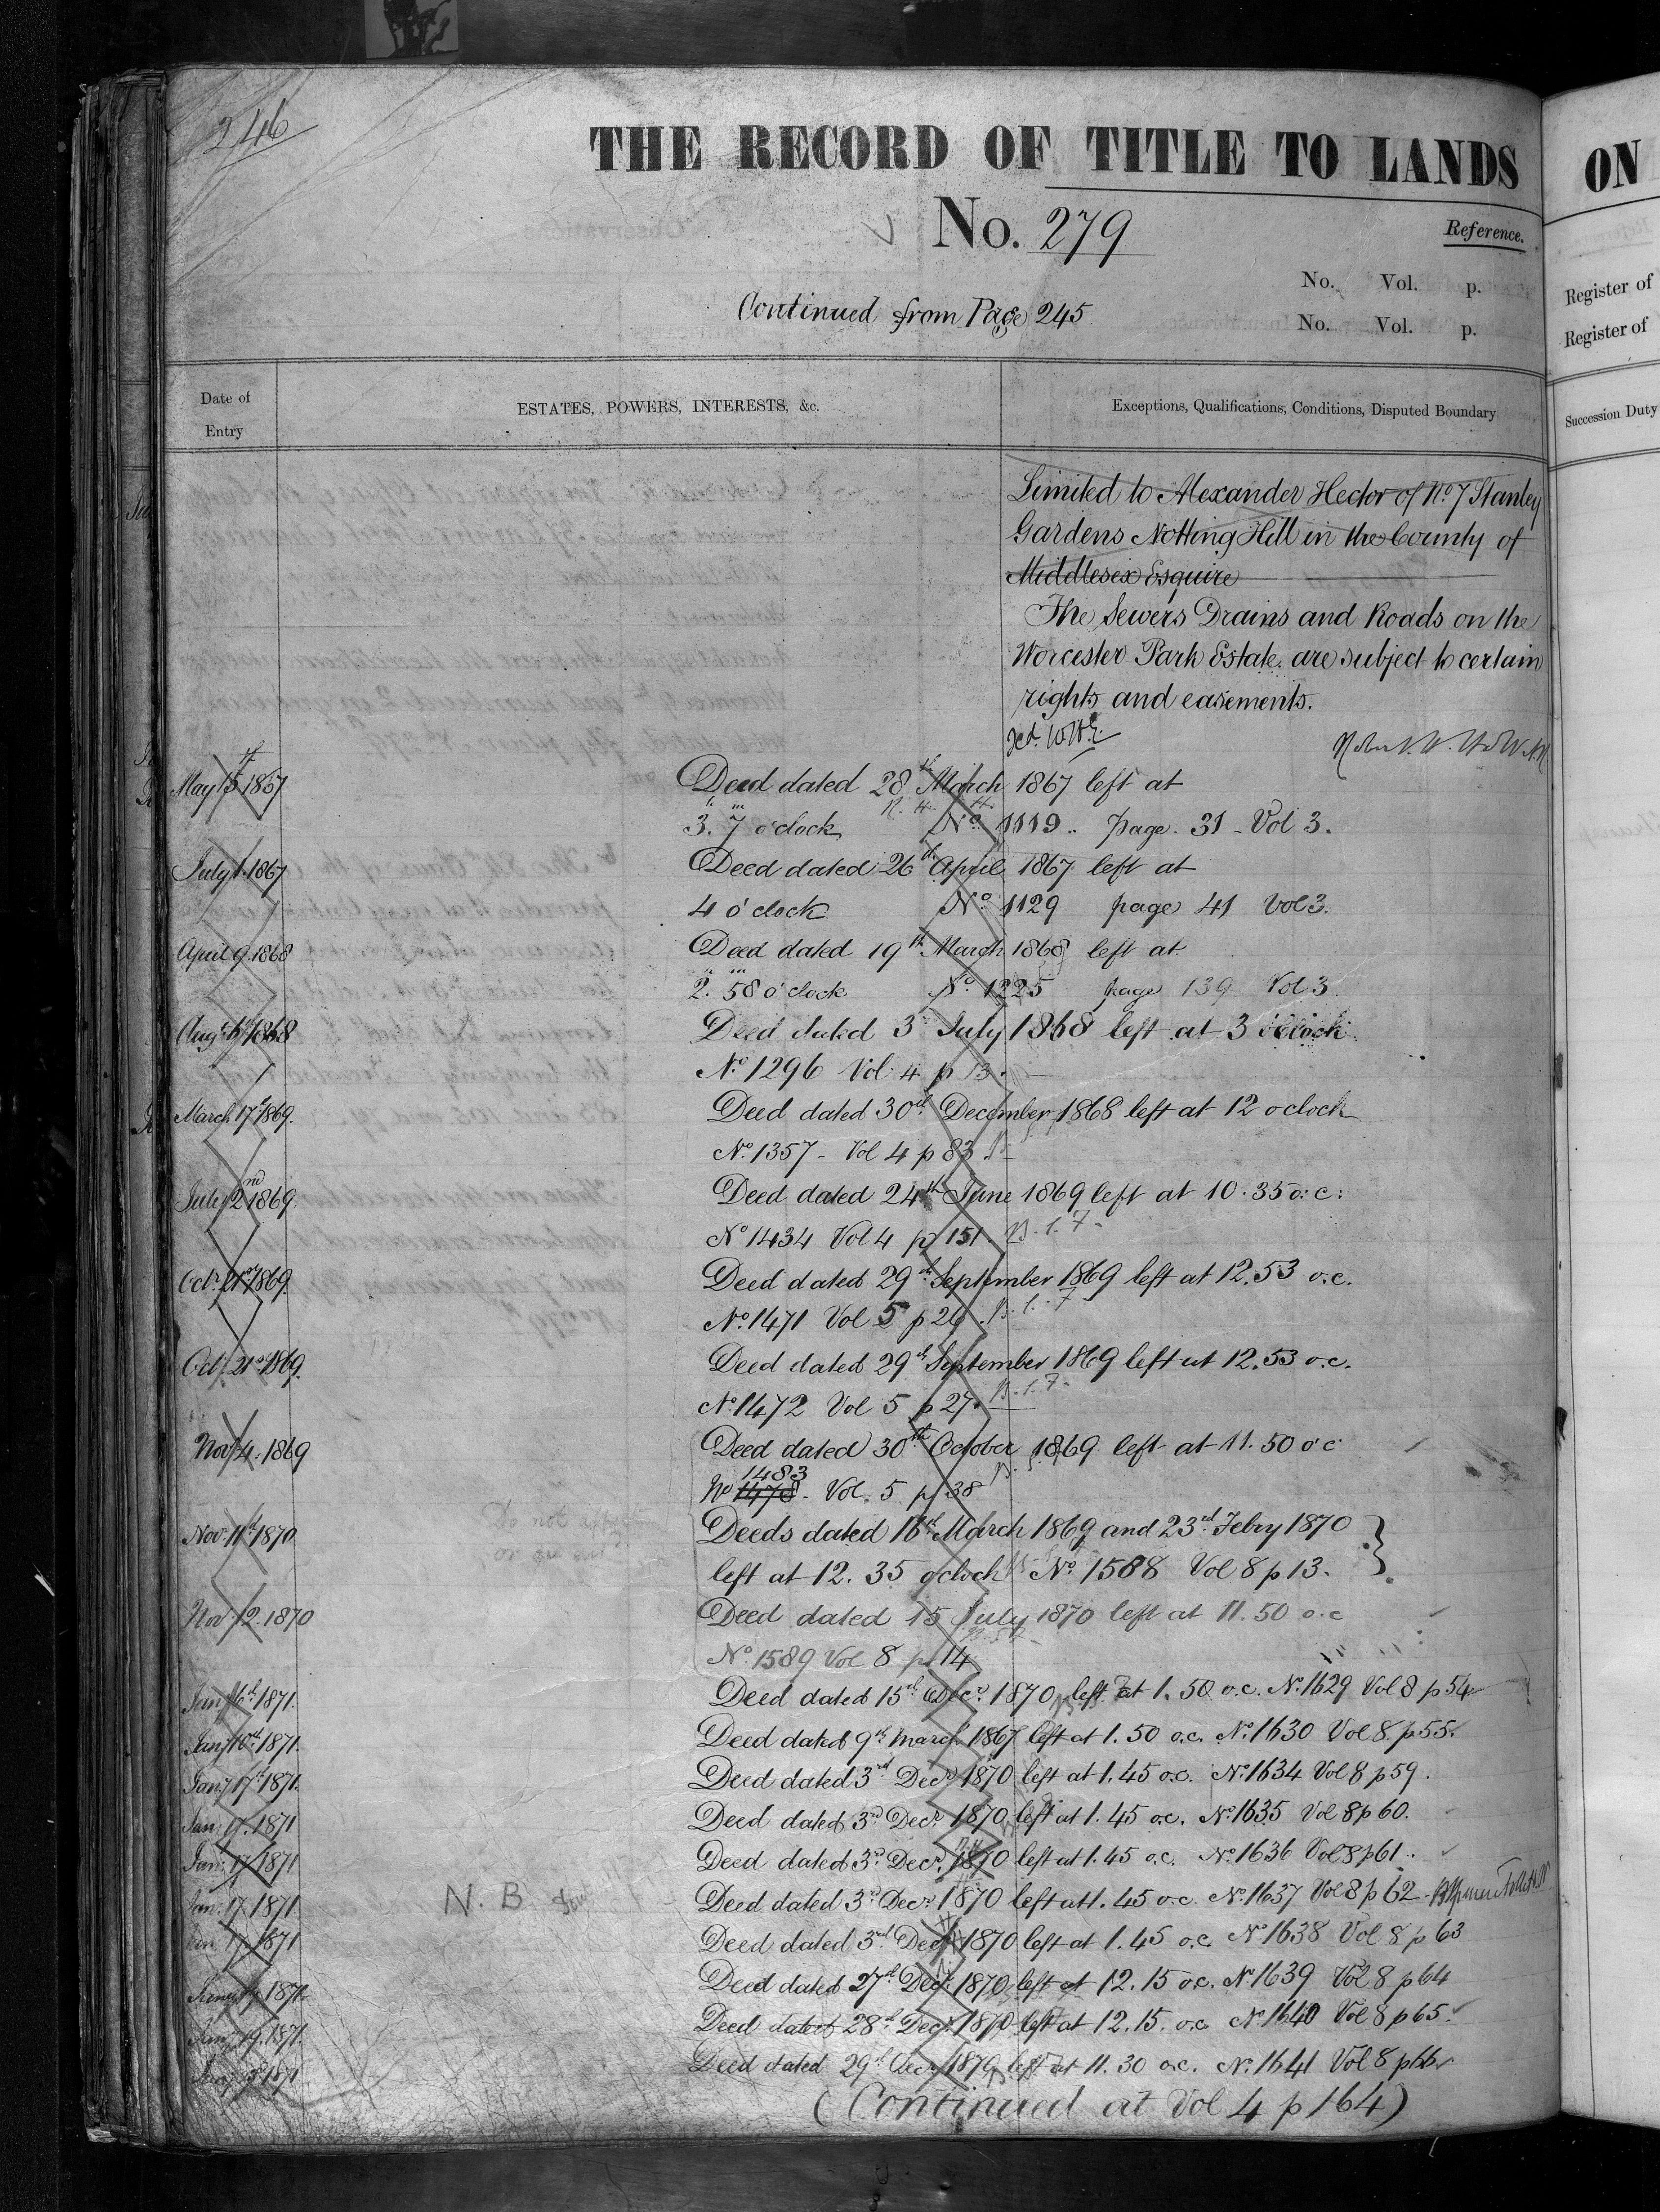 246
THE RECORD OF TITLE TO LANDS
ON
No. 279
Reference.
No. Vol. p.
Register of
Continued from Page 245
No. Vol. p.
Register of
Date of Entry
ESTATES, POWERS, INTERESTS, &c.
Exceptions, Qualifications, Conditions, Disputed Boundary
Succession Duty
Limited to Alexander Hector of No. 7 Stanley
Gardens Notting Hill in the County of
Middlesex Esquire
The Sewers Drains and Roads on the
Worcester Park Estate are subject to certain
rights and easements.
May 15 1867 Deed dated 28th March 1867 left at
3. 7 o'clock No. 1119 .. page 31 - Vol 3.
July 1. 1867 Deed dated 26th April 1867 left at
4 o'clock No. 1129 page 41 Vol 3.
April 9. 1868 Deed dated 19th March 1868 left at
2. 58 o'clock No. 1225 page 139 Vol 3.
Aug 1868 Deed dated 3d July 1868 left at 3 o'clock
No. 1296 Vol 4 p 13.
March 17th 1869. Deed dated 30th December 1868 left at 12 o clock
No. 1357 - Vol 4 p 83.
July 2nd 1869. Deed dated 24th June 1869 left at 10.35 o: c:
No. 1434 Vol 4 p 151
Oct. 21st 1869. Deed dated 29th September 1869 left at 12.53 o.c.
No. 1471 Vol 5 p 26.
Oct. 21st 1869. Deed dated 29th September 1869 left at 12.53 o.c.
No. 1472 Vol 5 p 27.
Nov 4. 1869 Deed dated 30th October 1869 left at 11.50 o c
1483
No 1478 - Vol. 5 p 38
Do not
or are
Nov 11th 1870 Deeds dated 16th March 1869 and 23rd Febry 1870
left at 12. 35 o clock No. 1588 Vol 8 p 13.
Nov 12. 1870 Deed dated 15 July 1870 left at 11.50 o.c
No. 1589 Vol 8 p 14
Jany 16th 1871. Deed dated 15th Decr. 1870 left at 1.50 o.c. No. 1629 Vol 8 p 54
Jany 16th 1871. Deed dated 9th March 1867 left at 1.50 o.c. No. 1630 Vol 8 p 55.
Jany 17th 1871. Deed dated 3rd Decr 1870 left at 1.45 o.c. No. 1634 Vol 8 p 59.
Jan: 17. 1871 Deed dated 3rd Decr. 1870 left at 1.45 o.c. No. 1635 Vol 8 p 60.
Jan: 17 1871 Deed dated 3rd Decr. 1870 left at 1.45 o.c. No. 1636 Vol 8 p 61.
N. B
Jan: 17. 1871 Deed dated 3rd Decr. 1870 left at 1.45 o.c. No. 1637 Vol 8 p 62
Jan 17 1871 Deed dated 3rd Decr 1870 left at 1.45 o.c. No. 1638 Vol 8 p 63
Jany 19 1871 Deed dated 27th Decr. 1870 left at 12.15 o.c. No. 1639 Vol 8 p 64
Jany 19. 1871. Deed dated 28th Decr. 1870 left at 12.15. o.c No. 1640 Vol 8 p 65.
1871 Deed dated 29th Decr 1870 left at 11.30 o.c. No. 1641 Vol 8 p 66
(Continued at Vol 4 p 164)